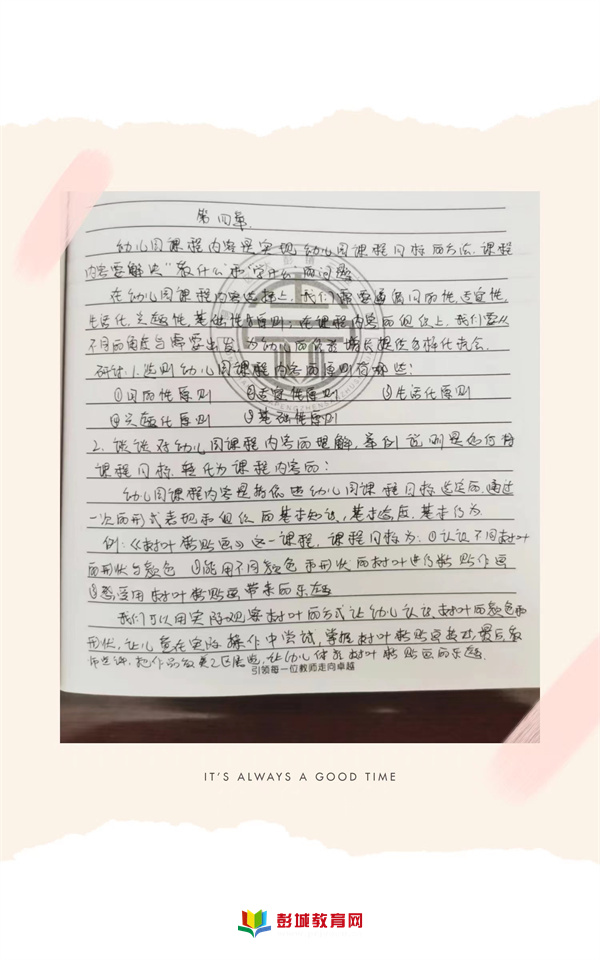 第四章
幼儿园课程内容是实现幼儿园课程目标的方法.课程
内容要解决"教什么"和"学什么"的问题
在幼儿园课程内容选择上,我们需要遵循目的性,适宜性,
生活化,兴趣性,基础性原则;在课程内容的组织上,我们要从
不同的角度与需要出发,为幼儿的经验增长提供多样化机会.
研讨:1.选则幼儿园课程内容的原则有哪些:
①目的性原则 ②适宜性原则 ③生活化原则
④兴趣化原则 ⑤基础性原则
2.谈谈对幼儿园课程内容的理解,举例说明是如何将
课程目标转化为课程内容的:
幼儿园课程内容是为促进幼儿园课程目标选定的,通过
一次的形式表现和组织的基本知识,基本态度,基本行为
例:《树叶粘贴画》这一课程.课程目标为:①认识不同树叶
的形状与颜色 ②能用不同颜色和形状的树叶进行粘贴作画
③感受用树叶粘贴画带来的乐趣
我们可以用实际观察树叶的方式让幼儿认识树叶的颜色和
形状,让儿童在实际操作中尝试,掌握树叶粘贴画技法,最后教
把作品放美工区展览,让幼儿体验树叶粘贴画的乐趣.
引领每一位教师走向卓越
IT'S ALWAYS A GOOD TIME
彭城教育网